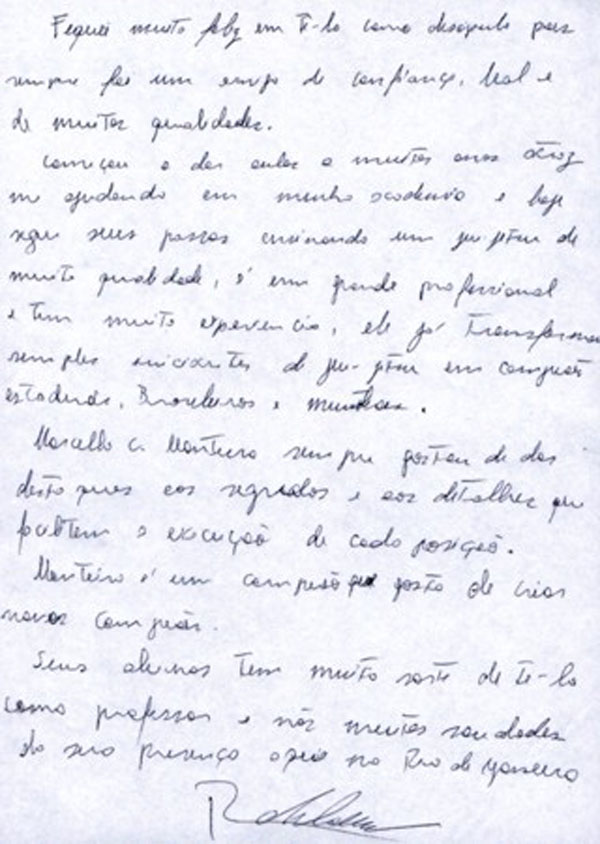 Fiquei muito feliz em tê-lo como discipulo pois
sempre foi um amigo de confiança, leal e
de muitas qualidades.
Começou a dar aulas a muitos anos atraz
me ajudando em minha academia e hoje
segue seus passos ensinando um jiu-jitsu de
muita qualidade, é um grande profissional
e tem muita experiencia, ele já transformou
simples iniciantes de jiu-jitsu em campeões
estaduais, Brasileiros e mundiais.
Marcello C. Monteiro sempre gostou de dar
destaques aos segredos e aos detalhes que
facilitem a execução de cada posição.
Monteiro é um campeão que gosta de criar
novos campeões.
Seus alunos tem muita sorte de te-lo
como professor e nós muitas saudades
da sua presença aqui no Rio de Janeiro